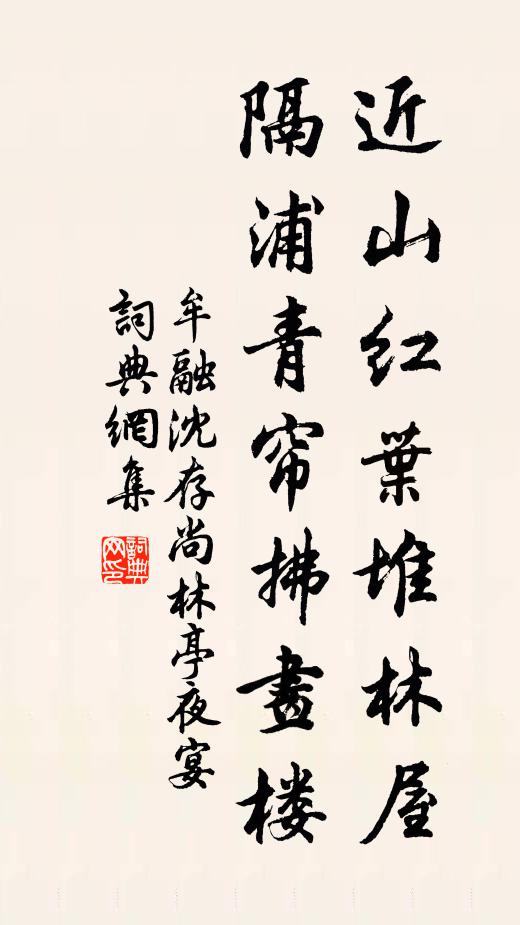 近山红葉堆林屋
隔浦青帘拂畫楼
牟融沈存尚林亭夜宴
詞典網集
詞典網印